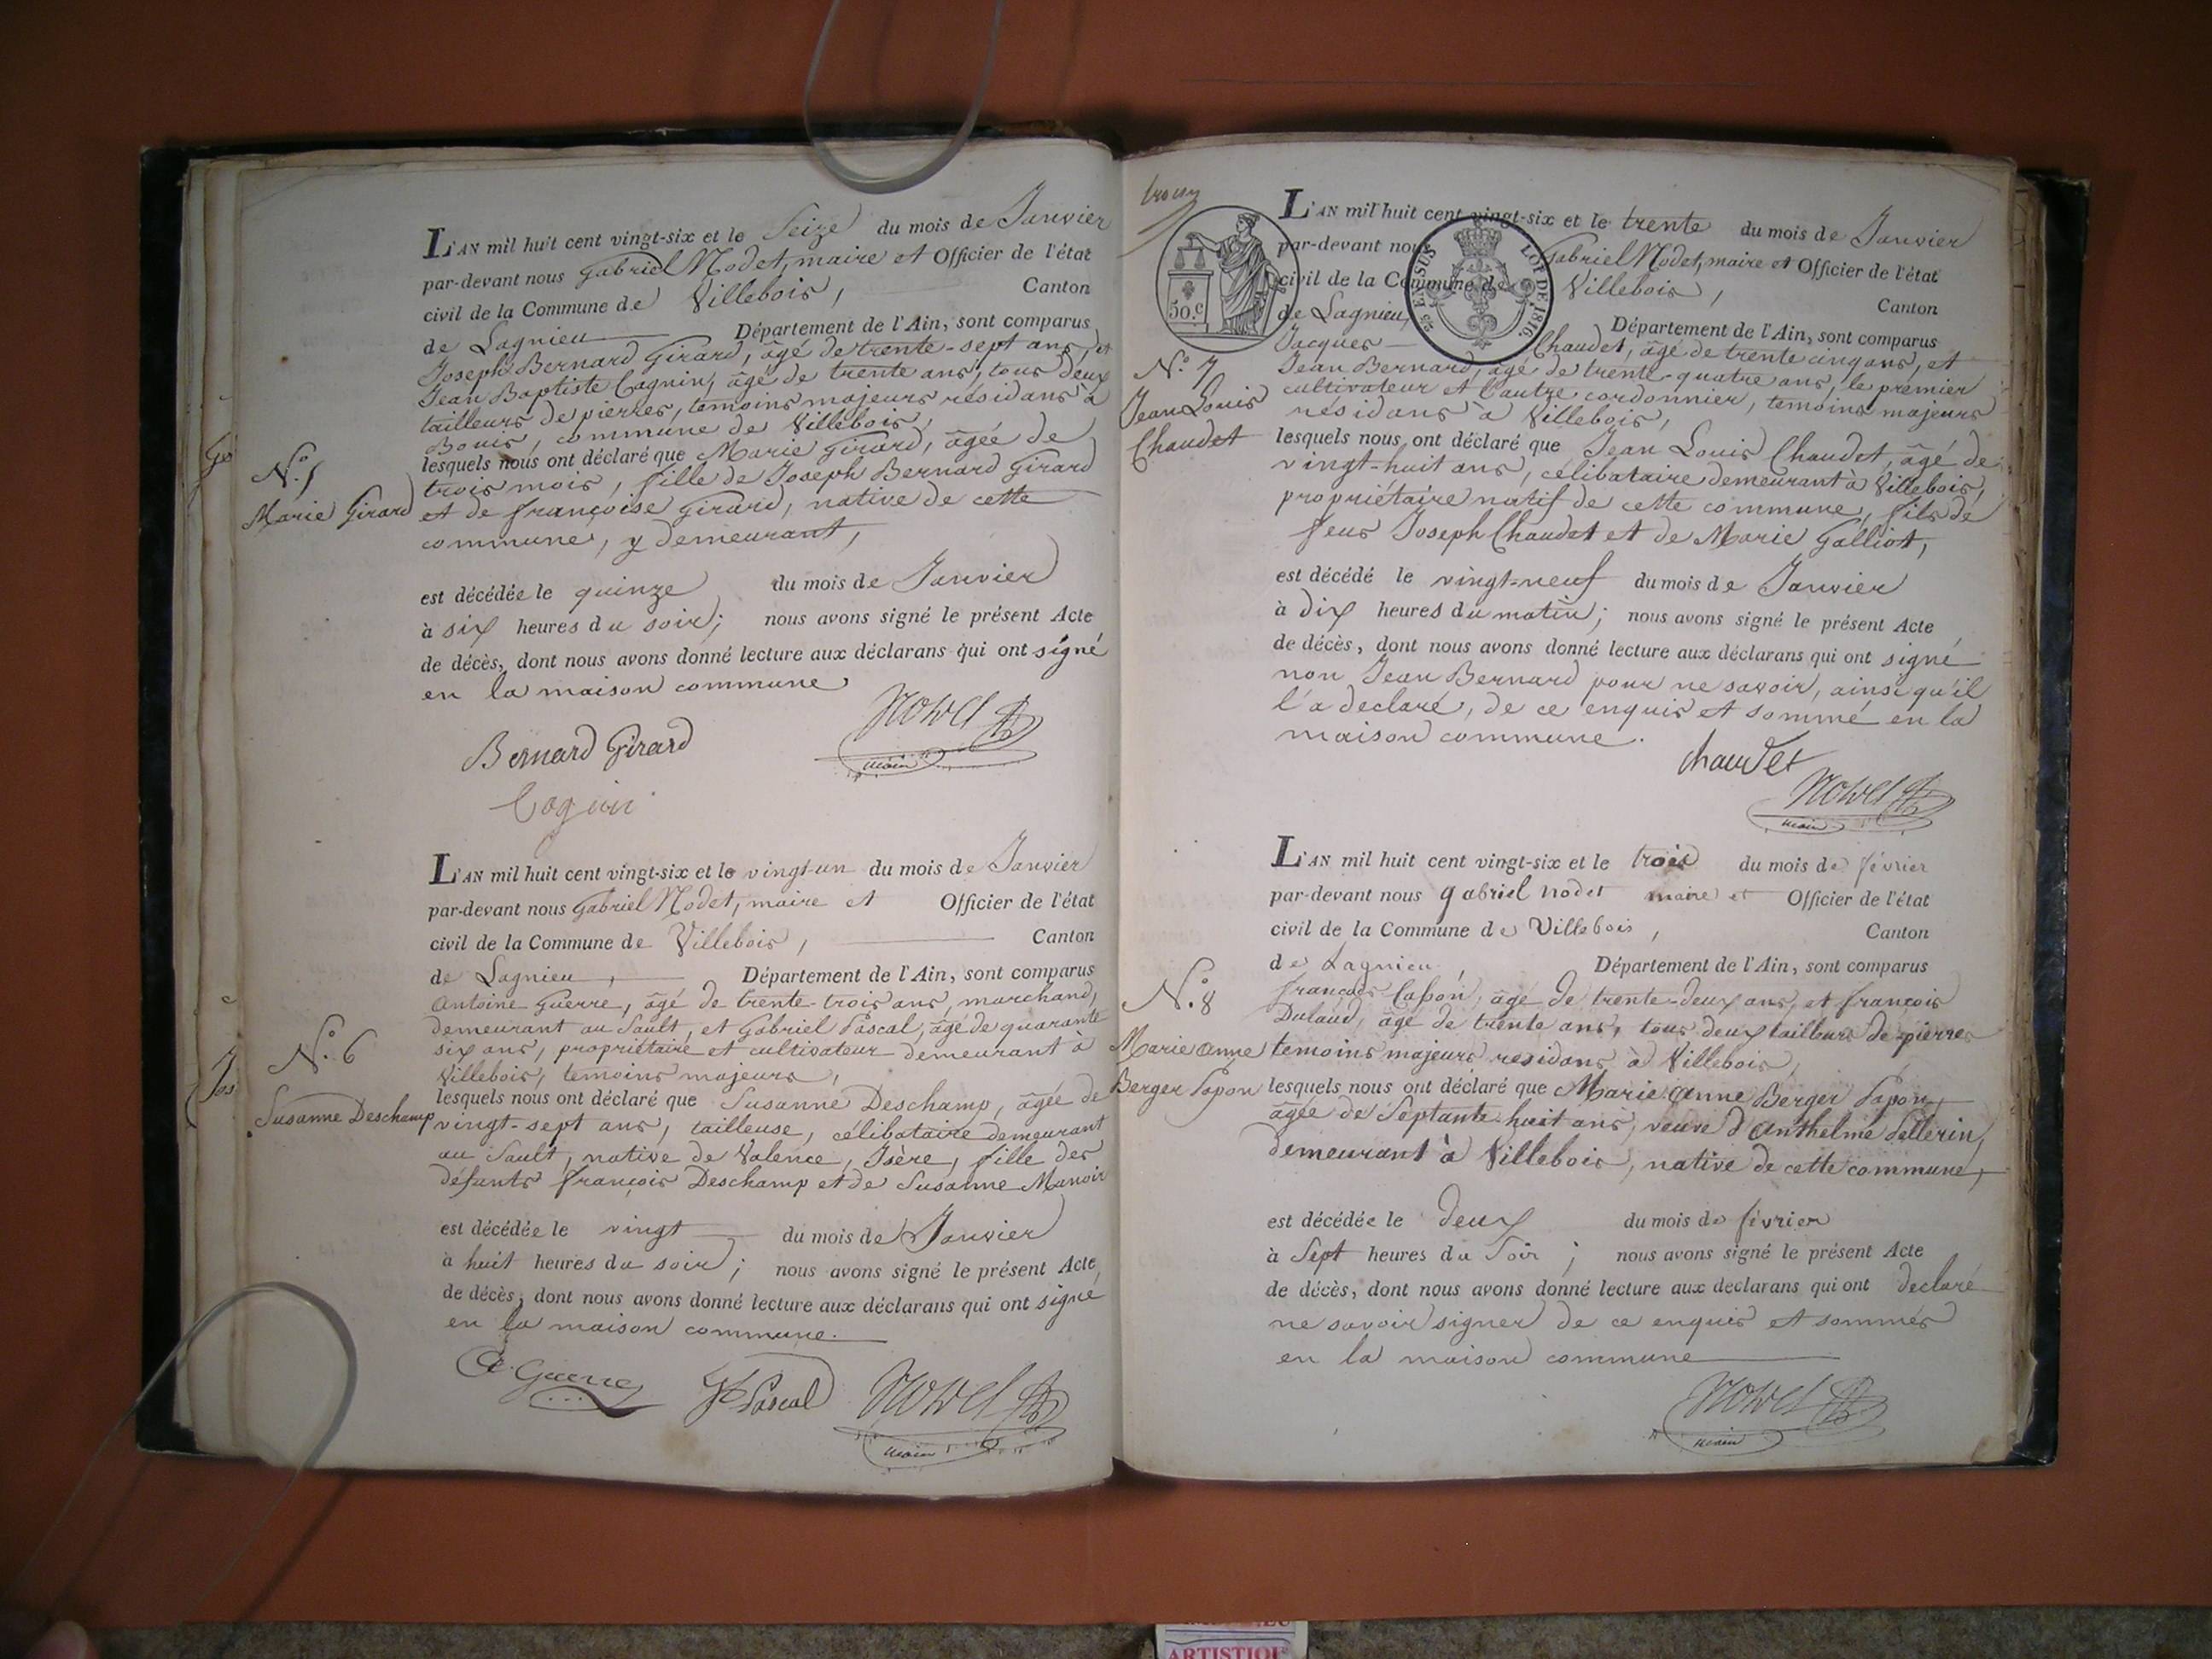 L'AN mil huit cent vingt-six et le Seize du mois de Janvier
par-devant nous Gabriel Nodet, maire et Officier de l'état
civil de la Commune de Villebois, Canton
de Lagnieu Département de l'Ain, sont comparus
Joseph Bernard Girard, âgé de trente-sept ans, et
Jean Baptiste Cognin, âgé de trente ans, tous deux
tailleurs de pierres, temoins majeurs résidans à
Bouis, commune de Villebois,
lesquels nous ont déclaré que Marie Girard, âgée de
trois mois, fille de Joseph Bernard Girard
et de françoise Girard, native de cette
commune, y demeurant,
est décédée le quinze du mois de Janvier
à six heures du soir; nous avons signé le présent Acte
de décès, dont nous avons donné lecture aux déclarans qui ont signé
en la maison commune
N.º 5
Marie Girard
Bernard Girard
Nodet
maire
Cognin
L'AN mil huit cent vingt-six et le vingt-un du mois de Janvier
par-devant nous Gabriel Nodet, maire et Officier de l'état
civil de la Commune de Villebois, Canton
de Lagnieu, Département de l'Ain, sont comparus
Antoine Guerre, âgé de trente-trois ans, marchand,
demeurant au Sault, et Gabriel Pascal, âgé de quarante
six ans, propriétaire et cultivateur demeurant à
Villebois, temoins majeurs,
lesquels nous ont déclaré que Susanne Deschamp, âgée de
vingt-sept ans, tailleuse, célibataire demeurant
au Sault, native de Valence, Isère, fille des
défunts françois Deschamp et de Susanne Manoir
est décédée le vingt du mois de Janvier
à huit heures du soir; nous avons signé le présent Acte
de décès, dont nous avons donné lecture aux déclarans qui ont signé
en la maison commune.
N.º 6
Susanne Deschamp
Guerre
Pascal
Nodet
maire
50.c
EN SUS
LOI DE 1816.
L'AN mil huit cent vingt-six et le trente du mois de Janvier
par-devant nous Gabriel Nodet, maire et Officier de l'état
civil de la Commune de Villebois, Canton
de Lagnieu, Département de l'Ain, sont comparus
Jacques Chaudet, âgé de trente cinq ans, et
Jean Bernard, âgé de trente-quatre ans, le premier
cultivateur et l'autre cordonnier, temoins majeurs
résidans à Villebois,
lesquels nous ont déclaré que Jean Louis Chaudet, âgé de
vingt-huit ans, célibataire demeurant à Villebois,
propriétaire natif de cette commune, fils de
feus Joseph Chaudet et de Marie Galliot,
est décédé le vingt-neuf du mois de Janvier
à dix heures du matin; nous avons signé le présent Acte
de décès, dont nous avons donné lecture aux déclarans qui ont signé
non Jean Bernard pour ne savoir, ainsi qu'il
l'a declaré, de ce enquis et sommé en la
maison commune.
N.º 7
Jean Louis
Chaudet
chaudet
Nodet
maire
L'AN mil huit cent vingt-six et le trois du mois de février
par-devant nous gabriel nodet maire et Officier de l'état
civil de la Commune de Villebois, Canton
de Lagnieu, Département de l'Ain, sont comparus
françois Casson, âgé de trente-deux ans, et françois
Dulaud, âgé de trente ans, tous deux tailleurs de pierres
temoins majeurs residans à Villebois,
lesquels nous ont déclaré que Marie anne Berger Papon,
âgée de Septante-huit ans, veuve d'anthelme Pellerin,
demeurant à Villebois, native de cette commune,
est décédée le deux du mois de février
à Sept heures du Soir; nous avons signé le présent Acte
de décès, dont nous avons donné lecture aux declarans qui ont declaré
ne savoir signer de ce enquis et sommés
en la maison commune
N.º 8
Marie anne
Berger Papon
Nodet
maire
ARTISTIQUE